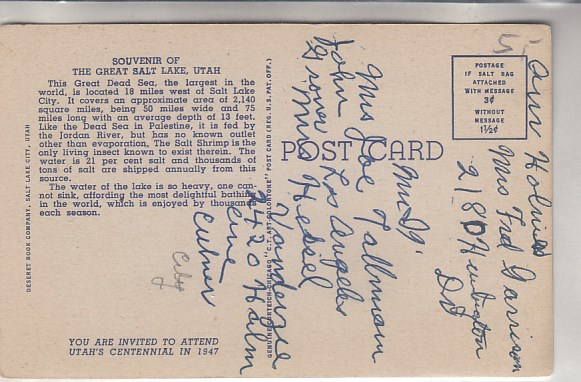 SOUVENIR OF
THE GREAT SALT LAKE, UTAH
This Great Dead Sea, the largest in the
world, is located 18 miles west of Salt Lake
City. It covers an approximate area of 2,140
square miles, being 50 miles wide and 75
miles long with an average depth of 13 feet.
Like the Dead Sea in Palestine, it is fed by
the Jordan River, but has no known outlet
other than evaporation. The Salt Shrimp is the
only living insect known to exist therein. The
water is 21 per cent salt and thousands of
tons of salt are shipped annually from this
source.
The water of the lake is so heavy, one can-
not sink, affording the most delightful bathing
in the world, which is enjoyed by thousands
each season.
YOU ARE INVITED TO ATTEND
UTAH'S CENTENNIAL IN 1947
DESERET BOOK COMPANY, SALT LAKE CITY, UTAH
GENUINE CURTEICH-CHICAGO "C.T. ART-COLORTONE" POST CARD (REG. U.S. PAT. OFF.)
POST CARD
POSTAGE
IF SALT BAG
ATTACHED
WITH MESSAGE
3¢
WITHOUT
MESSAGE
1½¢
Ann Holmes
Mrs Fred Garrison
2180 Huntington
Dr
Mrs Joe Tallman
Los Angeles
John
Grover
Mrs Hessel
Vanderzee
2420 Halm
Culver
City